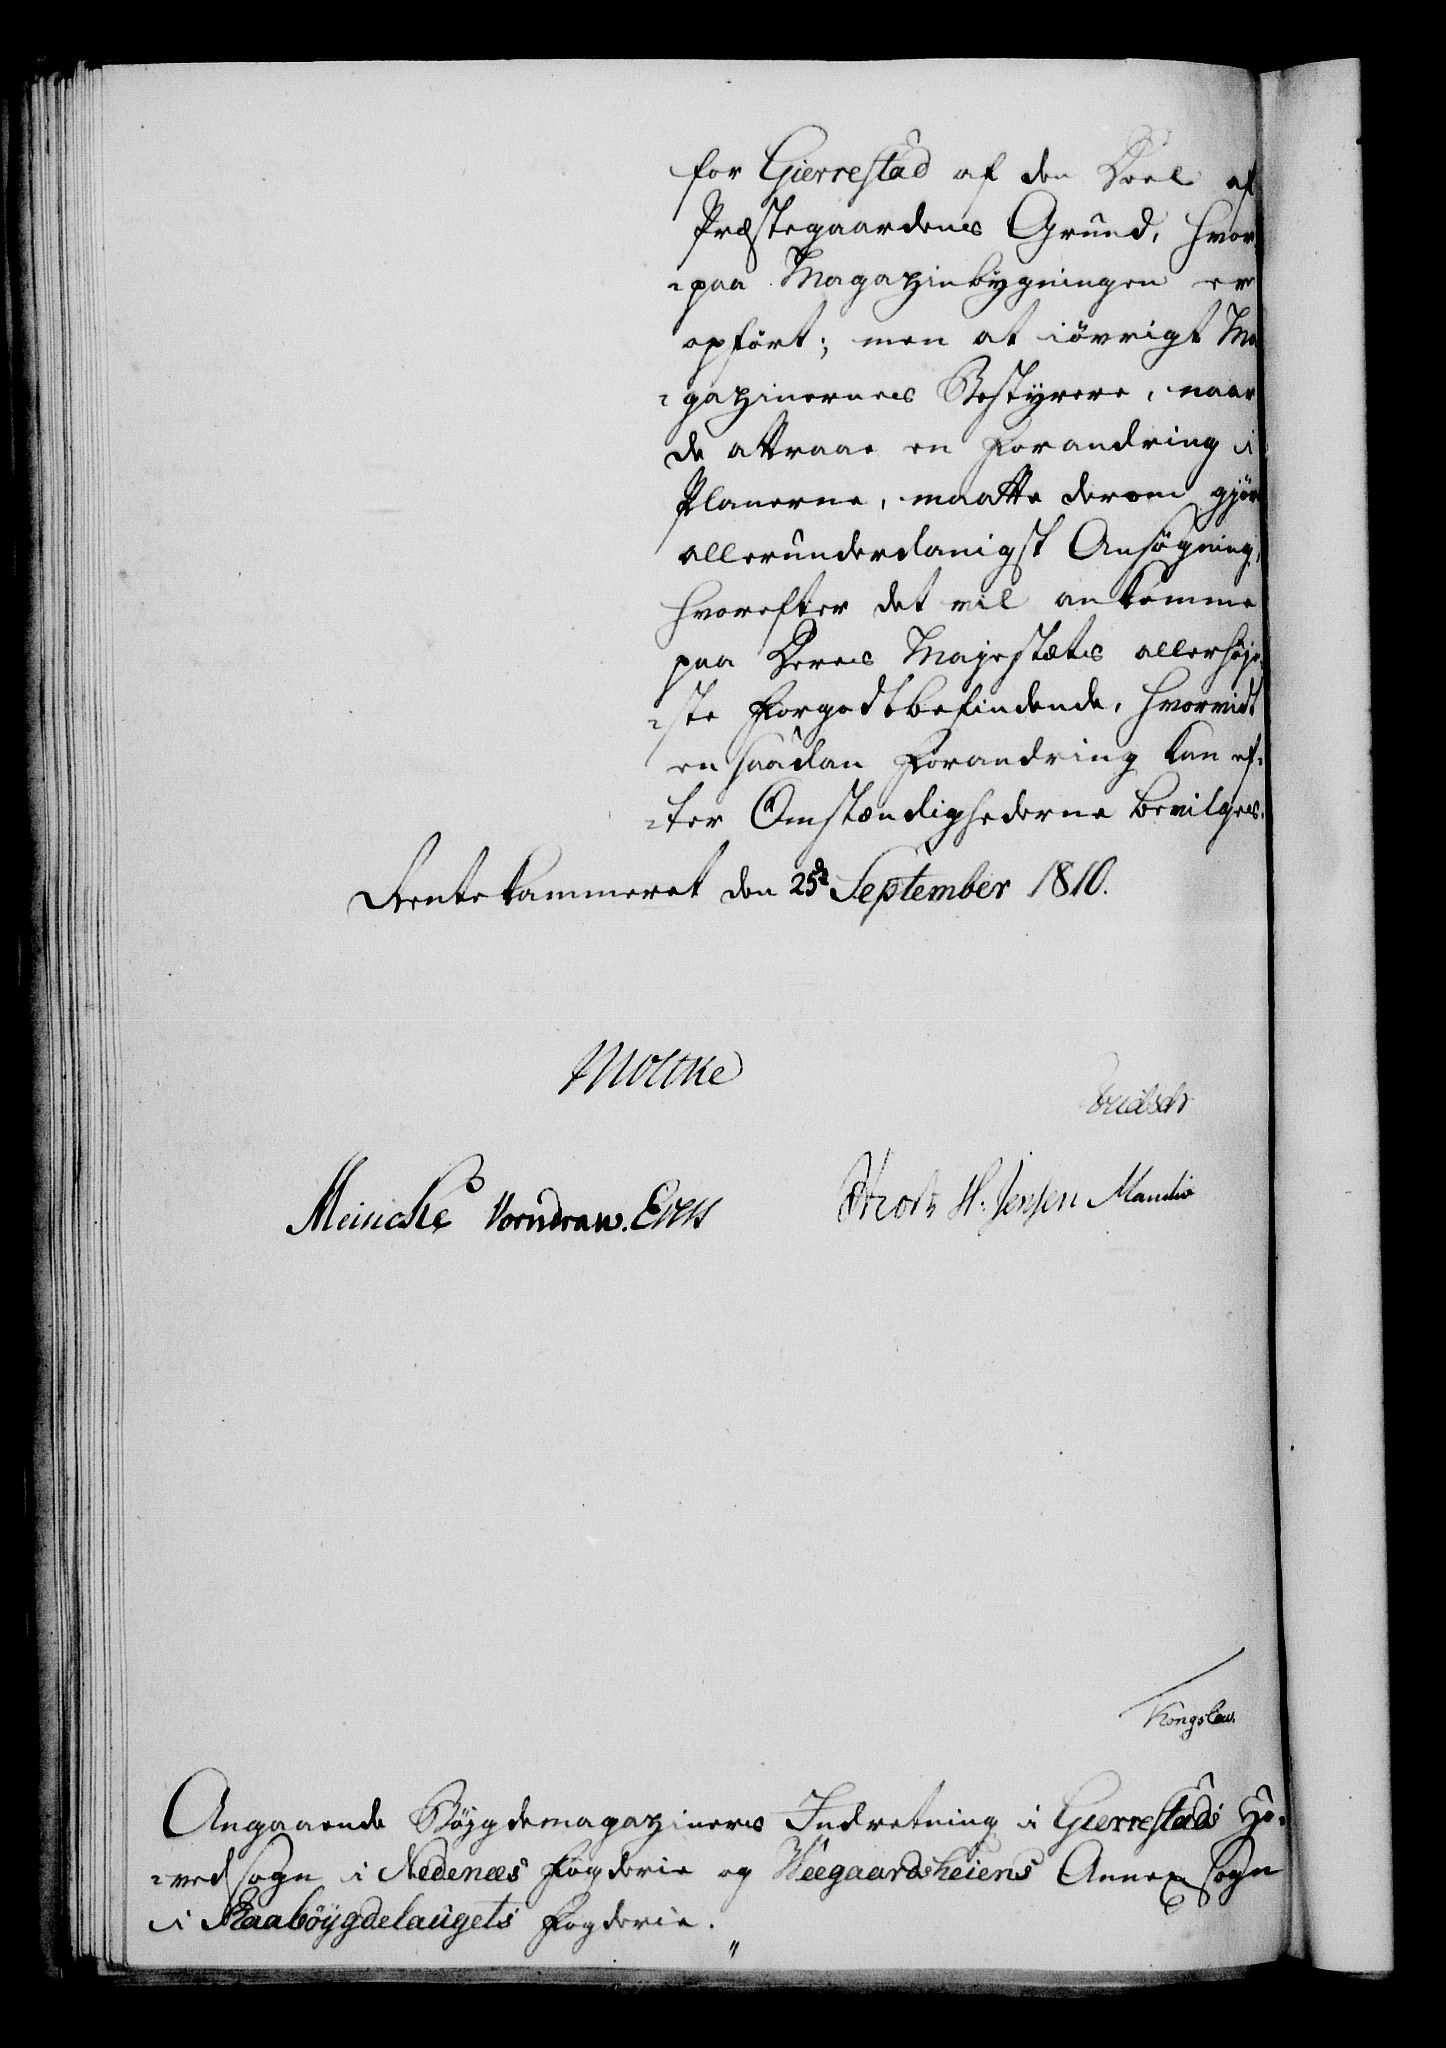 for Gierrestad af den Deel af
Præstegaardens Grund, hvor
-paa Magazinbygningen er
opført; men at iøvrigt Ma
-gazinernes Bestyrere, naar
de attraae en Forandring i
Planerne, maatte derom gjøre
allerunderdanigst Ansøgning,
hvorefter det vil ankomme
paa Deres Majestæts allerhøje-
-ste Forgodtbefindende, hvorvidt
en saadan Forandring kan ef-
-ter Omstændighederne bevilges.
Rentekammeret den 25de September 1810.
Moltke
Meincke Vorndran. Evers H. Jensen Manthe
Kongslew.
Angaaende Bøygdemagaziners Indretning i Gierrestads Ho-
-vedsogn i Nedenæs Fogderie og Weegaardsheiens Annexsogn
i Raabøygdelaugets Fogderie.